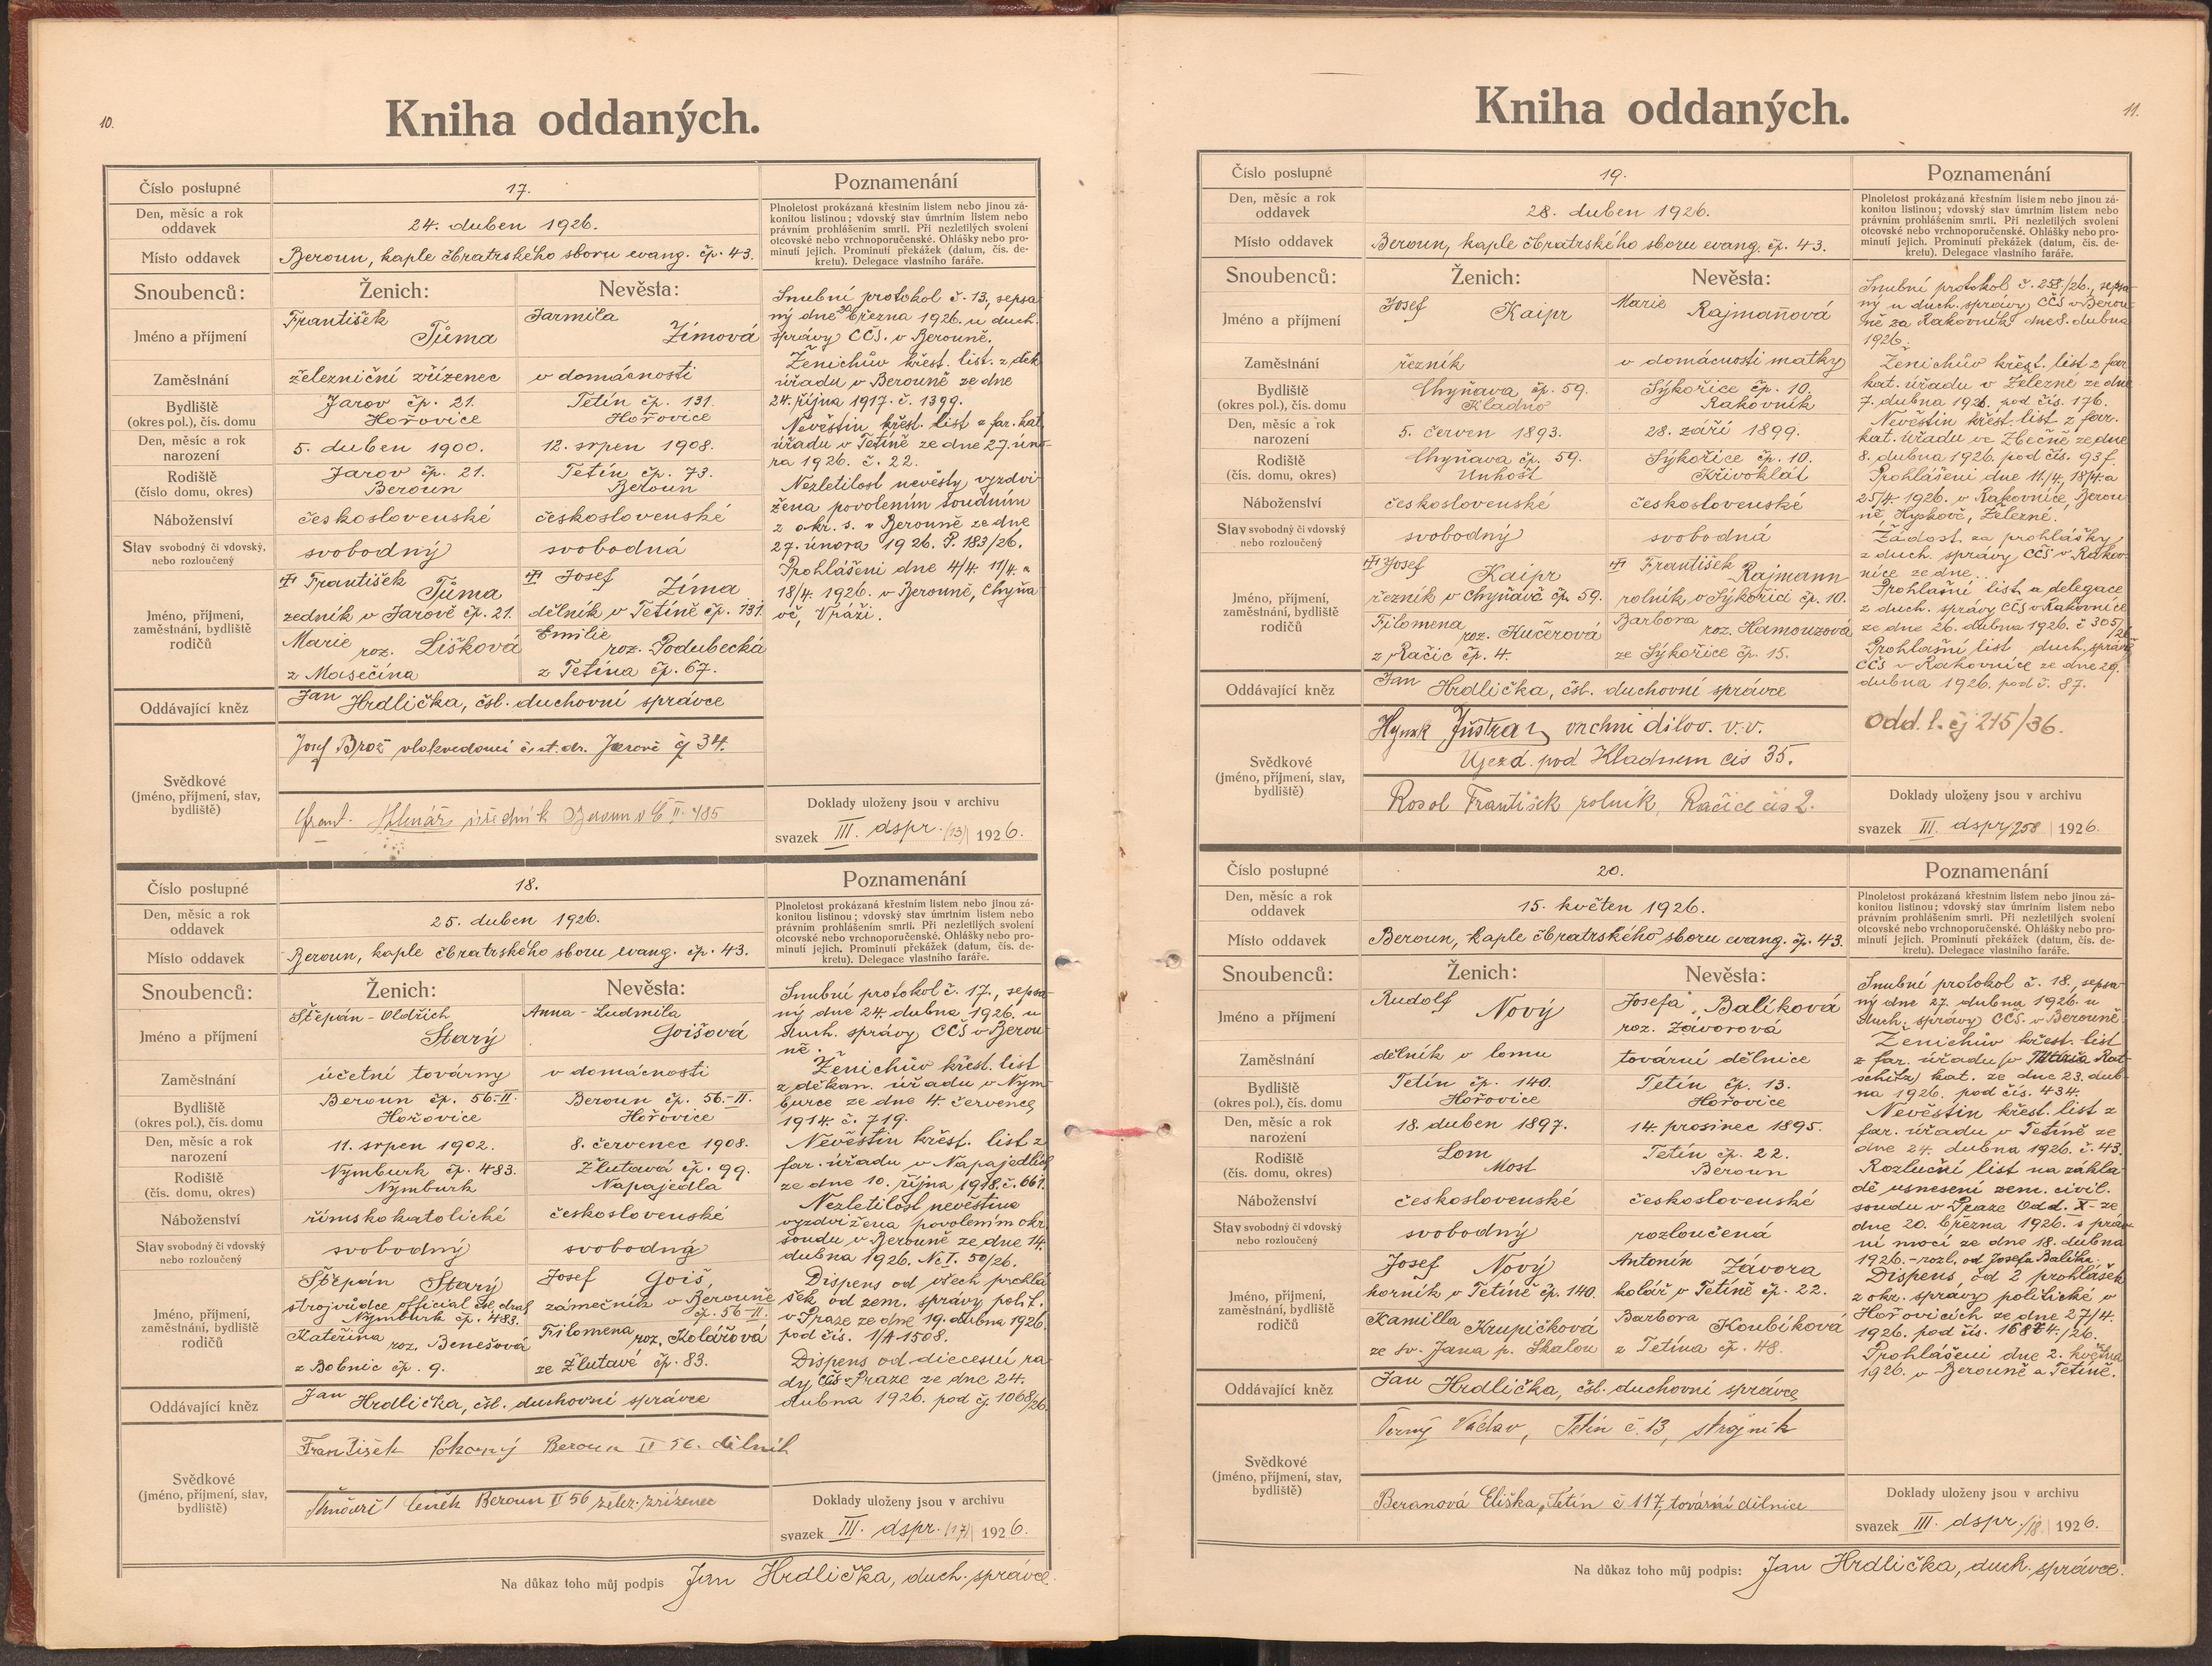 10.
Kniha oddaných.
Číslo postupné 17.
Den, měsíc a rok oddavek 24. duben 1926.
Místo oddavek Beroun, kaple čbratrského sboru evang. čp. 43.
Poznamenání
Plnoletost prokázaná křestním listem nebo jinou zá-
konitou listinou; vdovský stav úmrtním listem nebo
právním prohlášením smrti. Při nezletilých svolení
otcovské nebo vrchnoporučenské. Ohlášky nebo pro-
minutí jejich. Prominutí překážek (datum, čís. de-
kretu). Delegace vlastního faráře.
Snoubenců: Ženich: Nevěsta:
Jméno a příjmení
František Tůma
Jarmila Zímová
Zaměstnání železniční zřízenec v domácnosti
Bydliště (okres pol.), čís. domu
Jarov čp. 21. Hořovice
Tetín čp. 131. Hořovice
Den, měsíc a rok narození 5. duben 1900. 12. srpen 1908.
Rodiště (číslo domu, okres)
Jarov čp. 21. Beroun
Tetín čp. 73. Beroun
Náboženství československé československé
Stav svobodný či vdovský, nebo rozloučený svobodný svobodná
Jméno, příjmení, zaměstnání, bydliště rodičů
František Tůma
zedník v Jarově čp. 21.
Marie roz. Lišková
z Masečína
Josef Zíma
dělník v Tetíně čp. 131.
Emilie roz. Podubecká
z Tetína čp. 67.
Oddávající kněz Jan Hrdlička, čsl. duchovní správce
Svědkové (jméno, příjmení, stav, bydliště)
Josef Brož vlakvedoucí č. st. dr. Jarově čj 34.
Frant. úředník Beroun II. 485
Snubní protokol č. 13., sepsa-
ný dne března 1926. u duch.
správy CČS. v Berouně.
Ženichův křest. list. z děk.
úřadu v Berouně ze dne
24. října 1917. č. 1399.
Nevěstin křest. list z far. kat.
úřadu v Tetíně ze dne 27. úno-
ra 1926. č. 22.
Nezletilost nevěsty vyzdvi-
žena povolením soudním
z okr. s. v Berouně ze dne
27. února 1926. P. 183/26.
Prohlášeni dne 4/4. 11/4. a
18/4. 1926. v Berouně, Chyňa-
vě, Vráži.
Doklady uloženy jsou v archivu
svazek III. dspr. (13) 1926.
Číslo postupné 18.
Den, měsíc a rok oddavek 25. duben 1926.
Místo oddavek Beroun, kaple čbratrského sboru evang. čp. 43.
Poznamenání
Plnoletost prokázaná křestním listem nebo jinou zá-
konitou listinou; vdovský stav úmrtním listem nebo
právním prohlášením smrti. Při nezletilých svolení
otcovské nebo vrchnoporučenské. Ohlášky nebo pro-
minutí jejich. Prominutí překážek (datum, čís. de-
kretu). Delegace vlastního faráře.
Snoubenců: Ženich: Nevěsta:
Jméno a příjmení
Štěpán - Oldřich Starý
Anna - Ludmila Goišová
Zaměstnání účetní továrny v domácnosti
Bydliště (okres pol.), čís. domu
Beroun čp. 56.-II. Hořovice
Beroun čp. 56.-II. Hořovice
Den, měsíc a rok narození 11. srpen 1902. 8. červenec 1908.
Rodiště (čís. domu, okres)
Nymburk čp. 483. Nymburk
Žlutavá čp. 99. Napajedla
Náboženství římskokatolické československé
Stav svobodný či vdovský nebo rozloučený svobodný svobodná
Jméno, příjmení, zaměstnání, bydliště rodičů
Štěpán Starý
strojvůdce official čsl. drah
Nymburk čp. 483.
Kateřina roz. Benešová
z Bobnic čp. 9.
Josef Goiš,
zámečník v Berouně
čp. 56-II.
Filomena roz. Kolářová
ze Žlutavé čp. 83.
Oddávající kněz Jan Hrdlička, čsl. duchovní správce
Svědkové (jméno, příjmení, stav, bydliště)
František Pokorný Beroun II 56. dělník
Čeněk Beroun II 56 želez. zřízenec
Snubní protokol č. 17., sepsa-
ný dne 24. dubna 1926. u
duch. správy CČS v Berou-
ně.
Ženichův křest. list
z děkan. úřadu v Nym-
burce ze dne 4. července
1914. č. 719.
Nevěstin křest. list z
far. úřadu v Napajedlích
ze dne 10. října 1918. č. 661.
Nezletilost nevěstina
vyzdvižena povolením okr.
soudu v Berouně ze dne 14.
dubna 1926. Nc I. 50/26.
Dispens od všech prohlá-
šek od zem. správy polit.
v Praze ze dne 19. dubna 1926.
pod čís. 1/A 1508.
Dispens od diecesní ra-
dy CČS v Praze ze dne 24.
dubna 1926. pod čj. 1068/26.
Doklady uloženy jsou v archivu
svazek III. dspr. (17) 1926.
Na důkaz toho můj podpis Jan Hrdlička, duch. správce.
11.
Kniha oddaných.
Číslo postupné 19.
Den, měsíc a rok oddavek 28. duben 1926.
Místo oddavek Beroun, kaple čbratrského sboru evang. čp. 43.
Poznamenání
Plnoletost prokázaná křestním listem nebo jinou zá-
konitou listinou; vdovský stav úmrtním listem nebo
právním prohlášením smrti. Při nezletilých svolení
otcovské nebo vrchnoporučenské. Ohlášky nebo pro-
minutí jejich. Prominutí překážek (datum, čís. de-
kretu). Delegace vlastního faráře.
Snoubenců: Ženich: Nevěsta:
Jméno a příjmení
Josef Kaipr
Marie Rajmaňová
Zaměstnání řezník v domácnosti matky
Bydliště (okres pol.), čís. domu
Chyňava čp. 59. Kladno
Sýkořice čp. 10. Rakovník
Den, měsíc a rok narození 5. červen 1893. 28. září 1899.
Rodiště (čís. domu, okres)
Chyňava čp. 59. Unhošť
Sýkořice čp. 10. Křivoklát
Náboženství československé československé
Stav svobodný či vdovský nebo rozloučený svobodný svobodná
Jméno, příjmení, zaměstnání, bydliště rodičů
Josef Kaipr
řezník v Chyňavě čp 59.
Filomena roz. Kučerová
z Račic čp. 4.
František Rajmann
rolník v Sýkořici čp. 10.
Barbora roz. Hamouzová
ze Sýkořice čp. 15.
Oddávající kněz Jan Hrdlička, čsl. duchovní správce
Svědkové (jméno, příjmení, stav, bydliště)
Hynek vrchní dílov. v.v.
Ujezd pod Kladnem čis 35.
Rosol František rolník, Račice čis 2.
Snubní protokol č. 258/26., sepsa-
ný u duch. správy CČS v Berou-
ně za Rakovník dne 8. dubna
1926.
Ženichův křest. list z far.
kat. úřadu v Železné ze dne
7. dubna 1926. pod čís. 176.
Nevěstin křest. list z far.
kat. úřadu ve Zbečně ze dne
8. dubna 1926. pod čís. 93 f.
Prohlášeni dne 11/4., 18/4. a
25/4. 1926. v Rakovníce, Berou-
ně, Hyskově, Železné.
Žádost za prohlášky
z duch. správy CČS v Rakov-
níce ze dne...
Prohlašní list a delegace
z duch. správy CČS v Rakovníce
ze dne 26. dubna 1926. č 305/26
Prohlašní list duch. správy
CČS v Rakovníce ze dne 29.
dubna 1926. pod č. 87.
Odd. l. čj 215/36.
Doklady uloženy jsou v archivu
svazek III. dspr/258 1926.
Číslo postupné 20.
Den, měsíc a rok oddavek 15. květen 1926.
Místo oddavek Beroun, kaple čbratrského sboru evang. čp. 43.
Poznamenání
Plnoletost prokázaná křestním listem nebo jinou zá-
konitou listinou; vdovský stav úmrtním listem nebo
právním prohlášením smrti. Při nezletilých svolení
otcovské nebo vrchnoporučenské. Ohlášky nebo pro-
minutí jejich. Prominutí překážek (datum, čís. de-
kretu). Delegace vlastního faráře.
Snoubenců: Ženich: Nevěsta:
Jméno a příjmení
Rudolf Nový
Josefa Balíková
roz. Závorová
Zaměstnání dělník v lomu tovární dělnice
Bydliště (okres pol.), čís. domu
Tetín čp. 140. Hořovice
Tetín čp. 13. Hořovice
Den, měsíc a rok narození 18. duben 1897. 14. prosinec 1895.
Rodiště (čís. domu, okres)
Lom Most
Tetín čp. 22. Beroun
Náboženství československé československé
Stav svobodný či vdovský nebo rozloučený svobodný rozloučená
Jméno, příjmení, zaměstnání, bydliště rodičů
Josef Nový
horník v Tetíně čp. 140.
Kamilla Krupičková
ze sv. Jana p. Skalou
Antonín Závora
kolář v Tetíně čp. 22.
Barbora Koubíková
z Tetína čp. 48.
Oddávající kněz Jan Hrdlička, čsl. duchovní správce
Svědkové (jméno, příjmení, stav, bydliště)
Černý Václav, Tetín č. 13, strojník
Beranová Eliška, Tetín č 117, tovární dělnice
Snubní protokol č. 18., sepsa-
ný dne 27. dubna 1926. u
duch. správy CČS. v Berouně.
Ženichův křest. list
z far. úřadu (v Maria Rat-
schitz) kat. ze dne 23. dub-
na 1926. pod čís. 434.
Nevěstin křest. list z
far. úřadu v Tetíně ze
dne 24. dubna 1926. č. 43.
Rozluční list na zákla-
dě usnesení zem. civil.
soudu v Praze Odd. X- ze
dne 20. března 1926. s práv-
ní mocí ze dne 18. dubna
1926. - rozl. od Josefa Balíka.
Dispens od 2 prohlášek
z okr. správy politické v
Hořovicích ze dne 27/4.
1926. pod čís. 16874./26.
Prohlášeni dne 2. května
1926. v Berouně a Tetíně.
Doklady uloženy jsou v archivu
svazek III. dspr./18. 1926.
Na důkaz toho můj podpis: Jan Hrdlička, duch. správce.